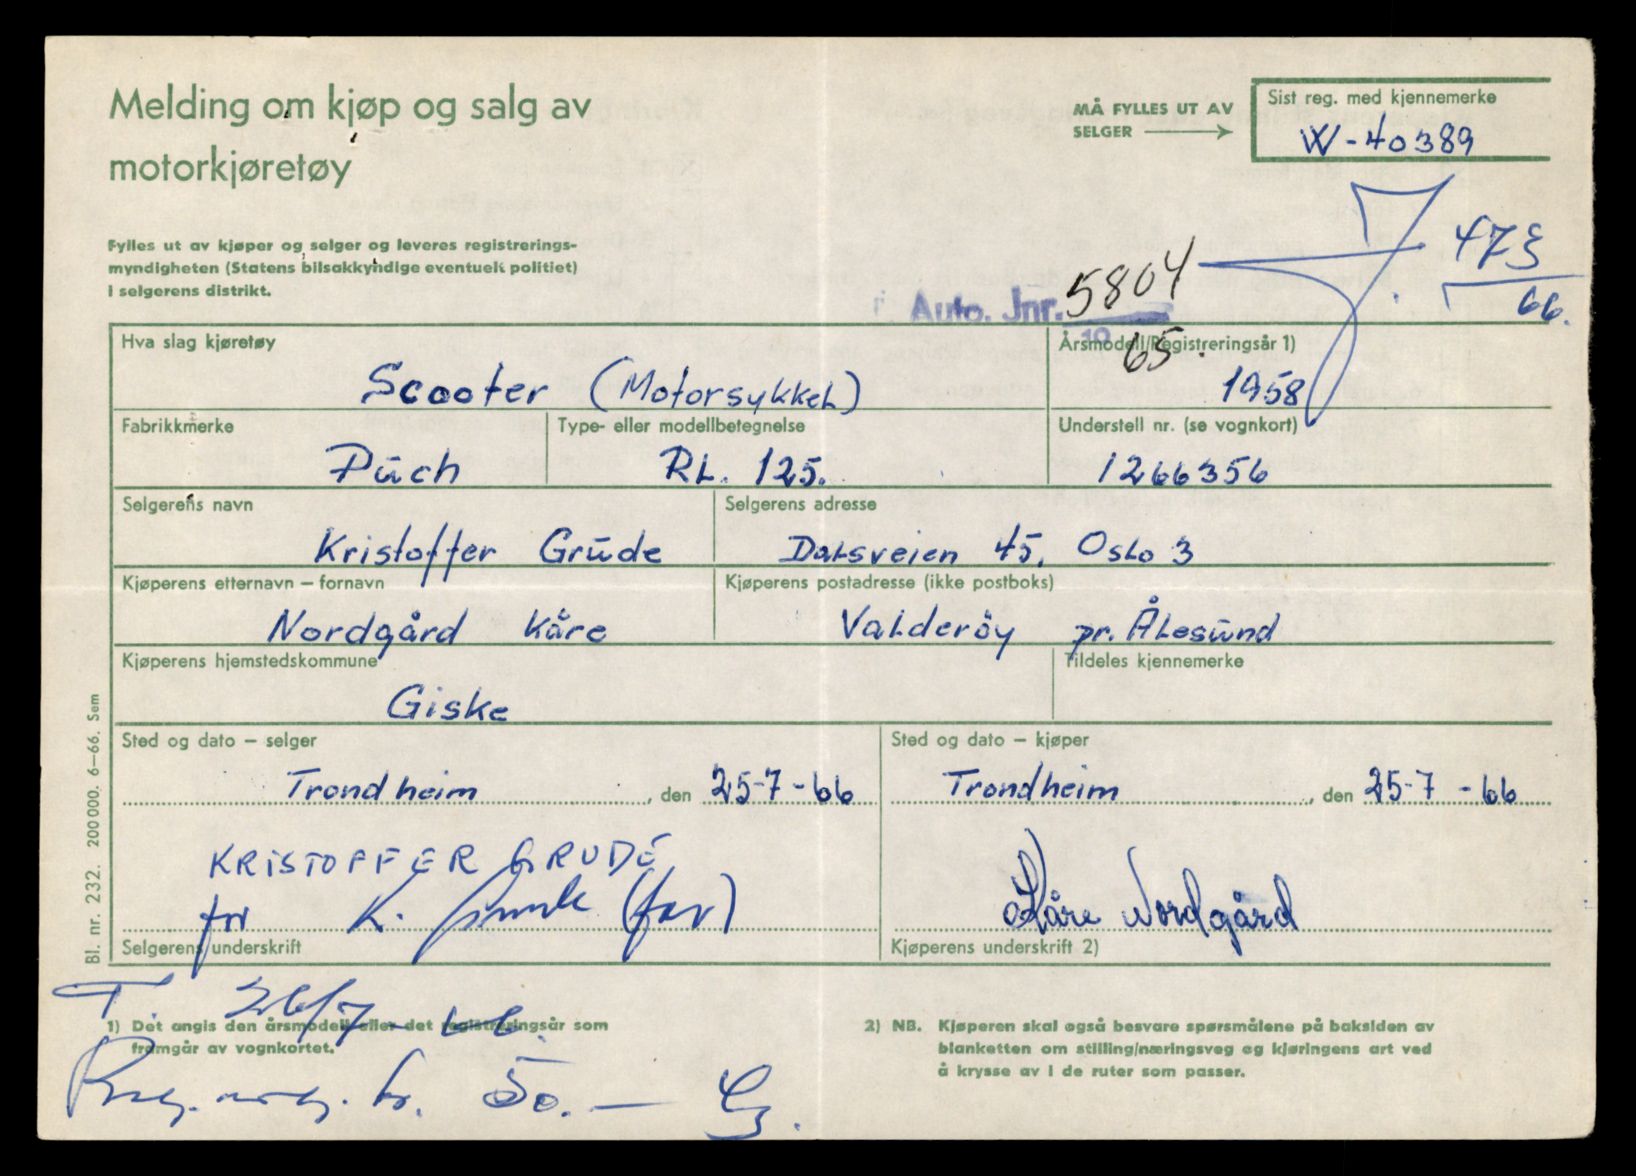 Melding om kjøp og salg av
motorkjøretøy
MÅ FYLLES UT AV
SELGER
Sist reg. med kjennemerke
W-40389
Fylles ut av kjøper og selger og leveres registrerings-
myndigheten (Statens bilsakkyndige eventuelt politiet)
i selgerens distrikt.
473
66.
Auto. Jnr. 5804
10
65.
Hva slag kjøretøy
Scooter (Motorsykkel)
Årsmodell/Registreringsår 1)
1958
Fabrikkmerke
Puch
Type- eller modellbetegnelse
RL. 125.
Understell nr. (se vognkort)
1266356
Selgerens navn
Kristoffer Grude
Selgerens adresse
Dalsveien 45. Oslo 3
Kjøperens etternavn – fornavn
Nordgård Kåre
Kjøperens postadresse (ikke postboks)
Valderöy pr. Ålesund
Kjøperens hjemstedskommune
Giske
Tildeles kjennemerke
Sted og dato – selger
Trondheim, den 25-7-66
Sted og dato – kjøper
Trondheim, den 25-7-66
KRISTOFFER GRUDE
for K. Grude (far)
Selgerens underskrift
Kåre Nordgård
Kjøperens underskrift 2)
Bl. nr. 232. 200 000. 6–66. Sem
T 26/7-66.
1) Det angis den årsmodell eller det registreringsår som
framgår av vognkortet.
2) NB. Kjøperen skal også besvare spørsmålene på baksiden av
blanketten om stilling/næringsveg og kjøringens art ved
å krysse av i de ruter som passer.
kr. 50.–